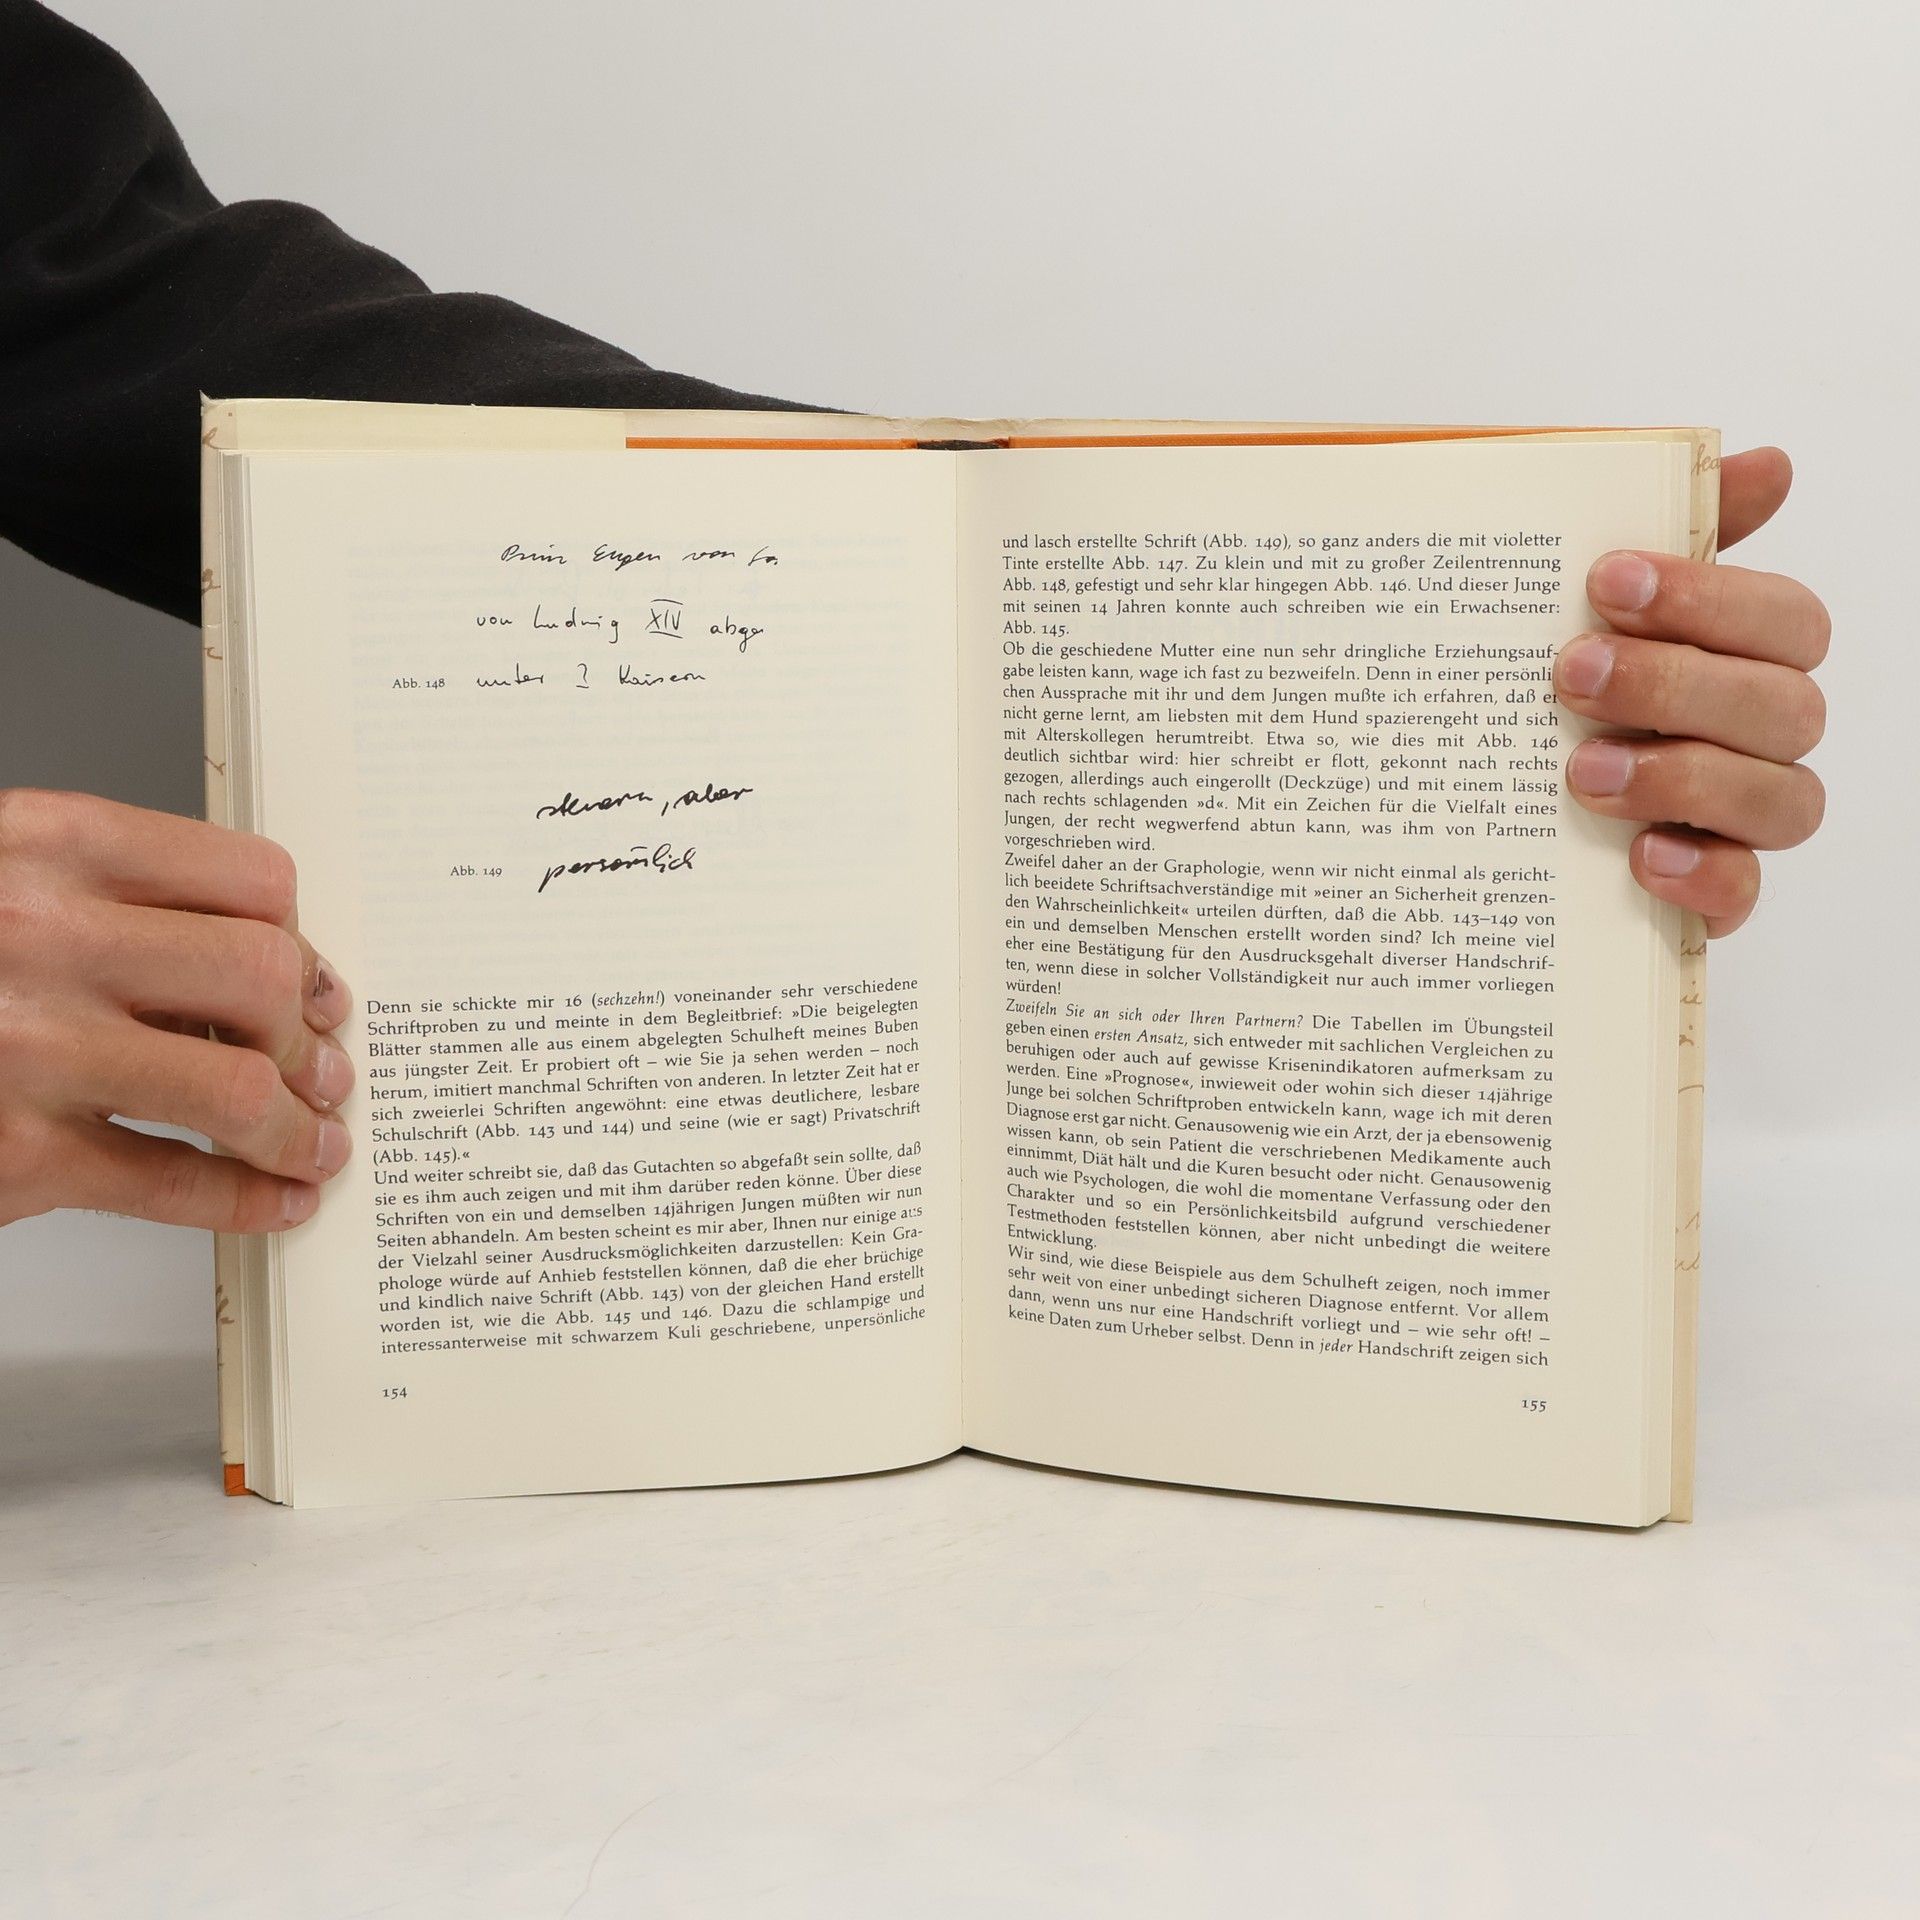 Prinz Eugen von Sa.
von Ludwig XIV abge
Abb. 148 unter ? Kaisern
steuern, aber
Abb. 149 persönlich
Denn sie schickte mir 16 (sechzehn!) voneinander sehr verschiedene
Schriftproben zu und meinte in dem Begleitbrief: »Die beigelegten
Blätter stammen alle aus einem abgelegten Schulheft meines Buben
aus jüngster Zeit. Er probiert oft – wie Sie ja sehen werden – noch
herum, imitiert manchmal Schriften von anderen. In letzter Zeit hat er
sich zweierlei Schriften angewöhnt: eine etwas deutlichere, lesbare
Schulschrift (Abb. 143 und 144) und seine (wie er sagt) Privatschrift
(Abb. 145).«
Und weiter schreibt sie, daß das Gutachten so abgefaßt sein sollte, daß
sie es ihm auch zeigen und mit ihm darüber reden könne. Über diese
Schriften von ein und demselben 14jährigen Jungen müßten wir nun
Seiten abhandeln. Am besten scheint es mir aber, Ihnen nur einige aus
der Vielzahl seiner Ausdrucksmöglichkeiten darzustellen: Kein Gra-
phologe würde auf Anhieb feststellen können, daß die eher brüchige
und kindlich naive Schrift (Abb. 143) von der gleichen Hand erstellt
worden ist, wie die Abb. 145 und 146. Dazu die schlampige und
interessanterweise mit schwarzem Kuli geschriebene, unpersönliche
154
und lasch erstellte Schrift (Abb. 149), so ganz anders die mit violetter
Tinte erstellte Abb. 147. Zu klein und mit zu großer Zeilentrennung
Abb. 148, gefestigt und sehr klar hingegen Abb. 146. Und dieser Junge
mit seinen 14 Jahren konnte auch schreiben wie ein Erwachsener:
Abb. 145.
Ob die geschiedene Mutter eine nun sehr dringliche Erziehungsauf-
gabe leisten kann, wage ich fast zu bezweifeln. Denn in einer persönli
chen Aussprache mit ihr und dem Jungen mußte ich erfahren, daß er
nicht gerne lernt, am liebsten mit dem Hund spazierengeht und sich
mit Alterskollegen herumtreibt. Etwa so, wie dies mit Abb. 146
deutlich sichtbar wird: hier schreibt er flott, gekonnt nach rechts
gezogen, allerdings auch eingerollt (Deckzüge) und mit einem lässig
nach rechts schlagenden »d«. Mit ein Zeichen für die Vielfalt eines
Jungen, der recht wegwerfend abtun kann, was ihm von Partnern
vorgeschrieben wird.
Zweifel daher an der Graphologie, wenn wir nicht einmal als gericht-
lich beeidete Schriftsachverständige mit »einer an Sicherheit grenzen-
den Wahrscheinlichkeit« urteilen dürften, daß die Abb. 143–149 von
ein und demselben Menschen erstellt worden sind? Ich meine viel
eher eine Bestätigung für den Ausdrucksgehalt diverser Handschrif-
ten, wenn diese in solcher Vollständigkeit nur auch immer vorliegen
würden!
Zweifeln Sie an sich oder Ihren Partnern? Die Tabellen im Übungsteil
geben einen ersten Ansatz, sich entweder mit sachlichen Vergleichen zu
beruhigen oder auch auf gewisse Krisenindikatoren aufmerksam zu
werden. Eine »Prognose«, inwieweit oder wohin sich dieser 14jährige
Junge bei solchen Schriftproben entwickeln kann, wage ich mit deren
Diagnose erst gar nicht. Genausowenig wie ein Arzt, der ja ebensowenig
wissen kann, ob sein Patient die verschriebenen Medikamente auch
einnimmt, Diät hält und die Kuren besucht oder nicht. Genausowenig
auch wie Psychologen, die wohl die momentane Verfassung oder den
Charakter und so ein Persönlichkeitsbild aufgrund verschiedener
Testmethoden feststellen können, aber nicht unbedingt die weitere
Entwicklung.
Wir sind, wie diese Beispiele aus dem Schulheft zeigen, noch immer
sehr weit von einer unbedingt sicheren Diagnose entfernt. Vor allem
dann, wenn uns nur eine Handschrift vorliegt und – wie sehr oft! –
keine Daten zum Urheber selbst. Denn in jeder Handschrift zeigen sich
155